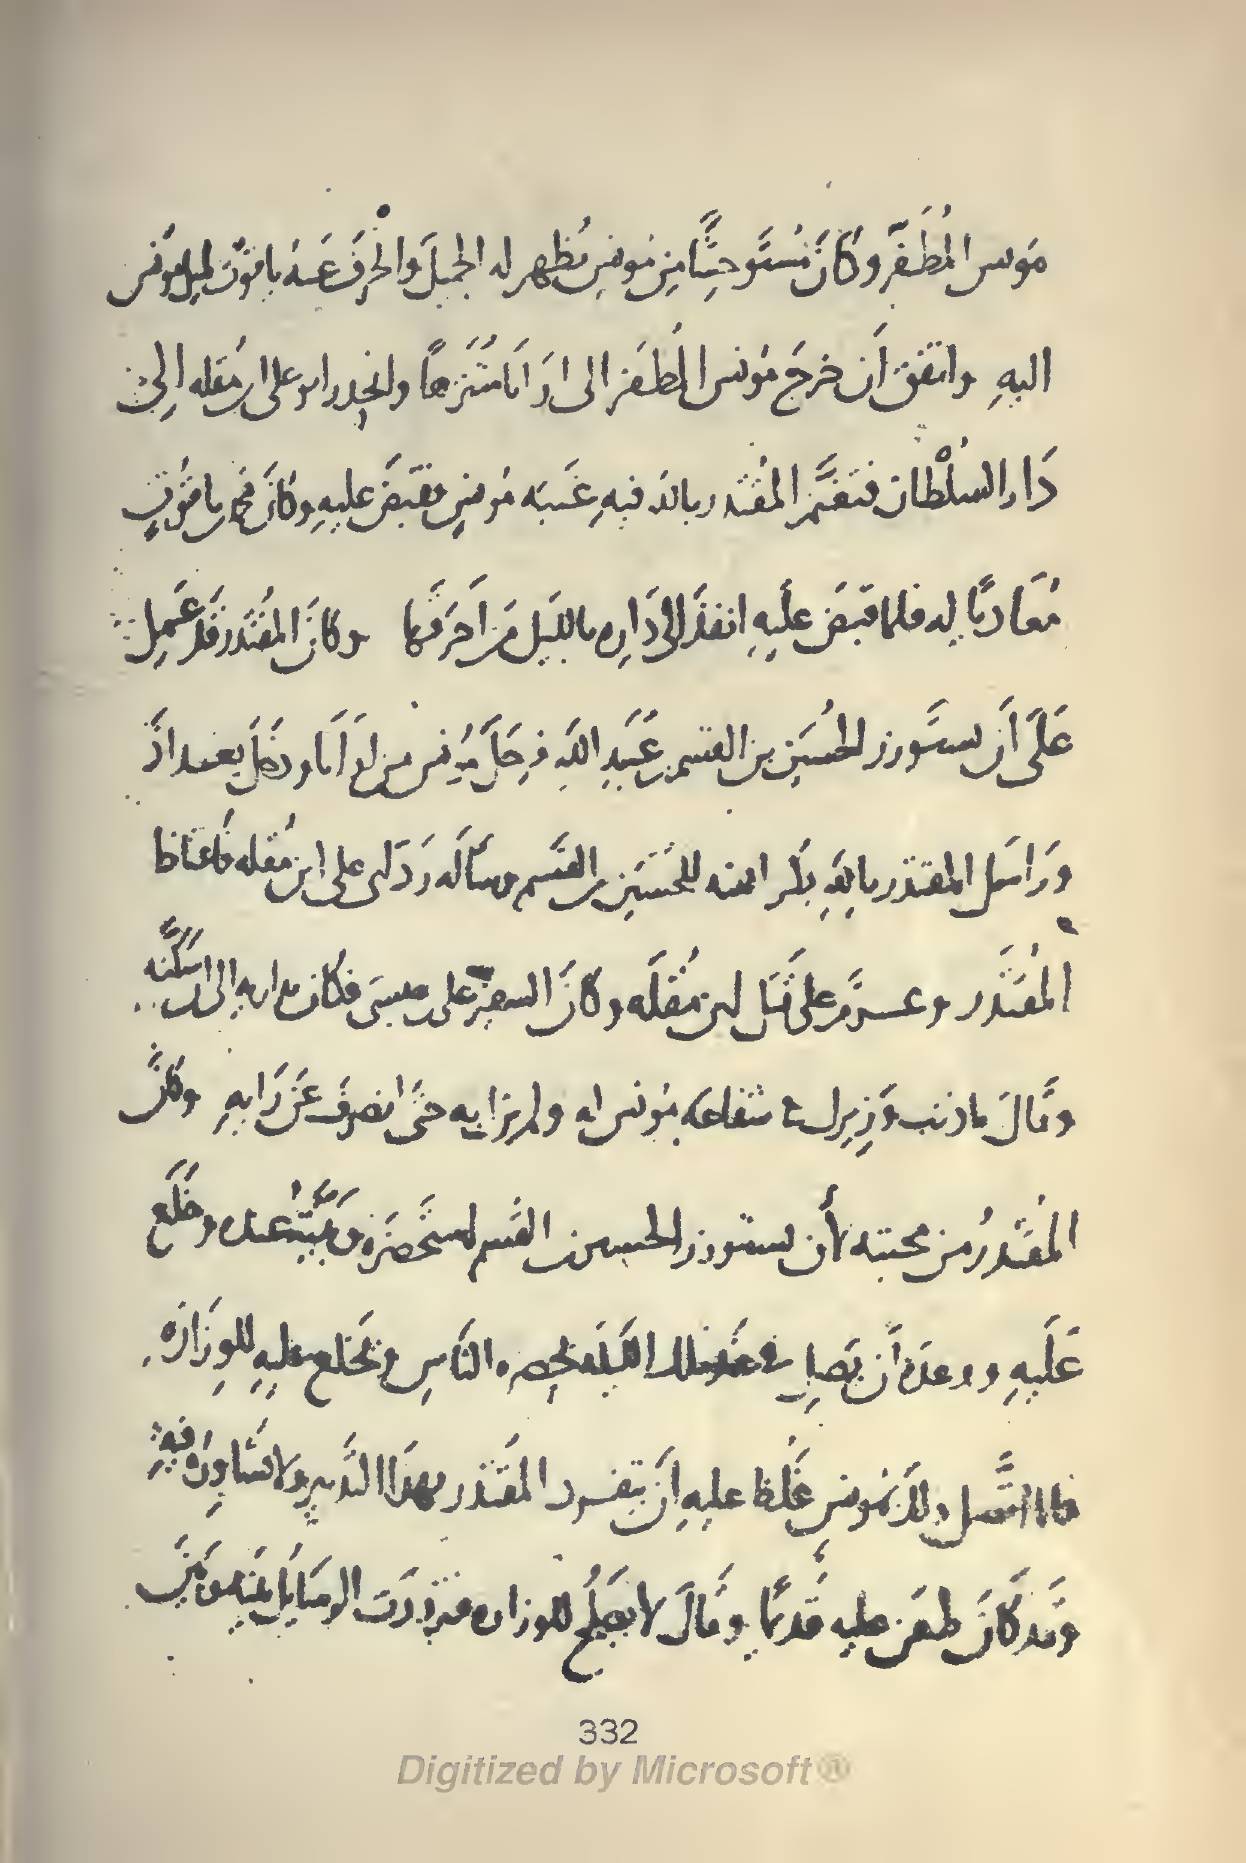 مؤنس المُظَفَّر وكانَ مُستَوحِشًا مِن مُونِسٍ يُظهر له الجميلَ وانحَرفَ عَنهُ ياقوت لميل مونس
اليهِ واتفقَ أن خرجَ مُونس المُظفَر الى اوَانَا مُتَنَزِهاً وانحدر ابو على ابن مُقله الى
دَار السُلْطان فتغَنَّم المُقتدر بالله فيهِ غَيبَه مُونسٍ فقبَضَ عليهِ وكانَ محمد بن ياقُوتٍ
مُعَاديًا له فلما قبَضَ علَيهِ انفذَ الى دَارِه بالليَلِ مَن احَرقَها وكانَ المُقتَدر قَد عَمِل
عَلَى أن يستَوزر الحُسَين بن القسم بن عُبَيدِ اللهِ فرَحَلَ مُونس من اوَانَا ودَخَلَ بغداذَ
ورَاسَل المقتدر باللهِ بكرَاهته للحُسَين بن القسَم وسَألَه رَدَّ ابى على ابن مُقله فاغتاظ
المُقتَدر وعَزَم على قَتل ابن مُقلَه وكانَ السفير على بن عيسىَ فكان يداريه الى ان سَكَّنه
وقَالَ ما ذنب وَزِيرك فى شفاعه مُونس له ولم يزل به حتَى انصرفَ عَن رَايهِ وكانَ
المُقتَدرُ من محبته لأن يستوزر الحسين بن القَسم استَحضَره وبَيَّتهُ عنده وخَلَع
عَلَيهِ ووعدَهُ أن يَصل فى غد تلك الليلَه بحضره النَاسِ ويَخلع عليهِ للوزَارَه
فلما اتصَّل ذلكَ بمُونسٍ غَلُظ عليهِ اَن يتفرد المُقتَدر بهذَا التدَبير ولا يُشَاورَه فيهِ
وقَد كَانَ طعَن عليه قَديمًا وقَالَ لا يصَلُح للوزاره فترَدَدَت الرسَايل بينَه وبَينَ
332
Digitized by Microsoft®